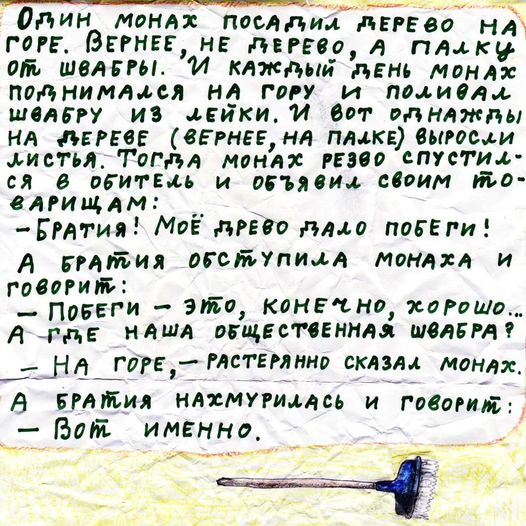 Один монах посадил дерево на
горе. Вернее, не дерево, а палку
от швабры. И каждый день монах
поднимался на гору и поливал
швабру из лейки. И вот однажды
на дереве (вернее, на палке) выросли
листья. Тогда монах резво спустил-
ся в обитель и объявил своим то-
варищам:
– Братия! Моё древо дало побеги!
А братия обступила монаха и
говорит:
– Побеги – это, конечно, хорошо...
А где наша общественная швабра?
– На горе, – растерянно сказал монах.
А братия нахмурилась и говорит:
– Вот именно.